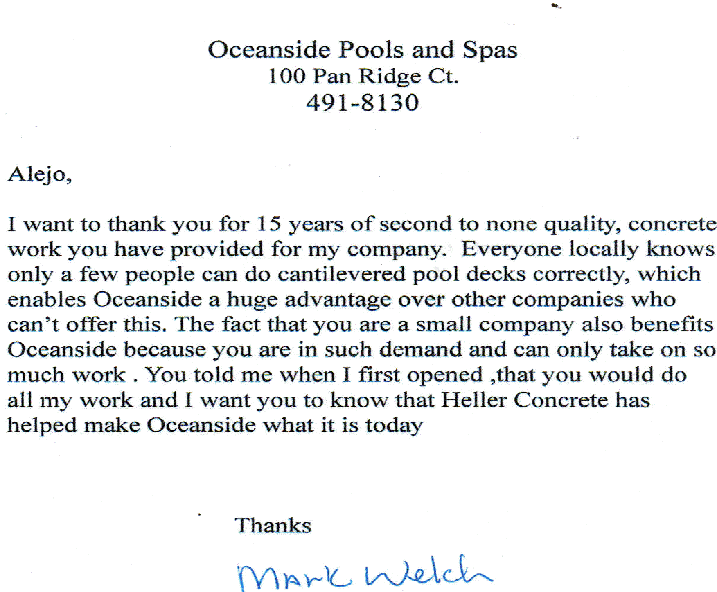 Oceanside Pools and Spas
100 Pan Ridge Ct.
491-8130
Alejo,
I want to thank you for 15 years of second to none quality, concrete
work you have provided for my company.  Everyone locally knows
only a few people can do cantilevered pool decks correctly, which
enables Oceanside a huge advantage over other companies who
can't offer this. The fact that you are a small company also benefits
Oceanside because you are in such demand and can only take on so
much work . You told me when I first opened ,that you would do
all my work and I want you to know that Heller Concrete has
helped make Oceanside what it is today
Thanks
Mark Welch